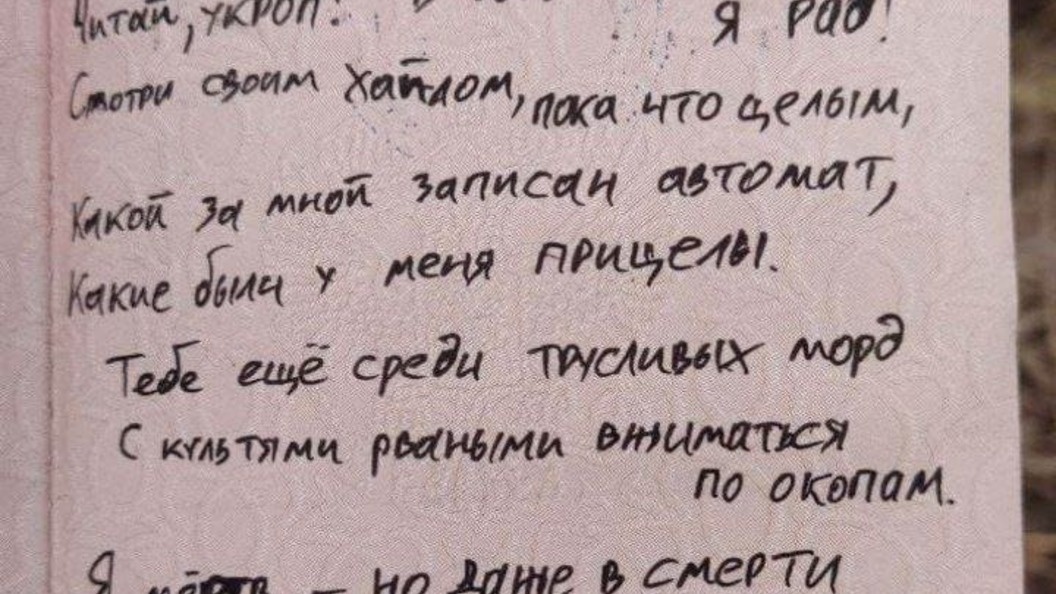 Читай, укроп!
Я рад!
Смотри своим хайлом, пока что целым,
Какой за мной записан автомат,
Какие были у меня прицелы.
Тебе ещё среди трусливых морд
С культями рваными вжиматься
по окопам.
Я мёртв – но даже в смерти